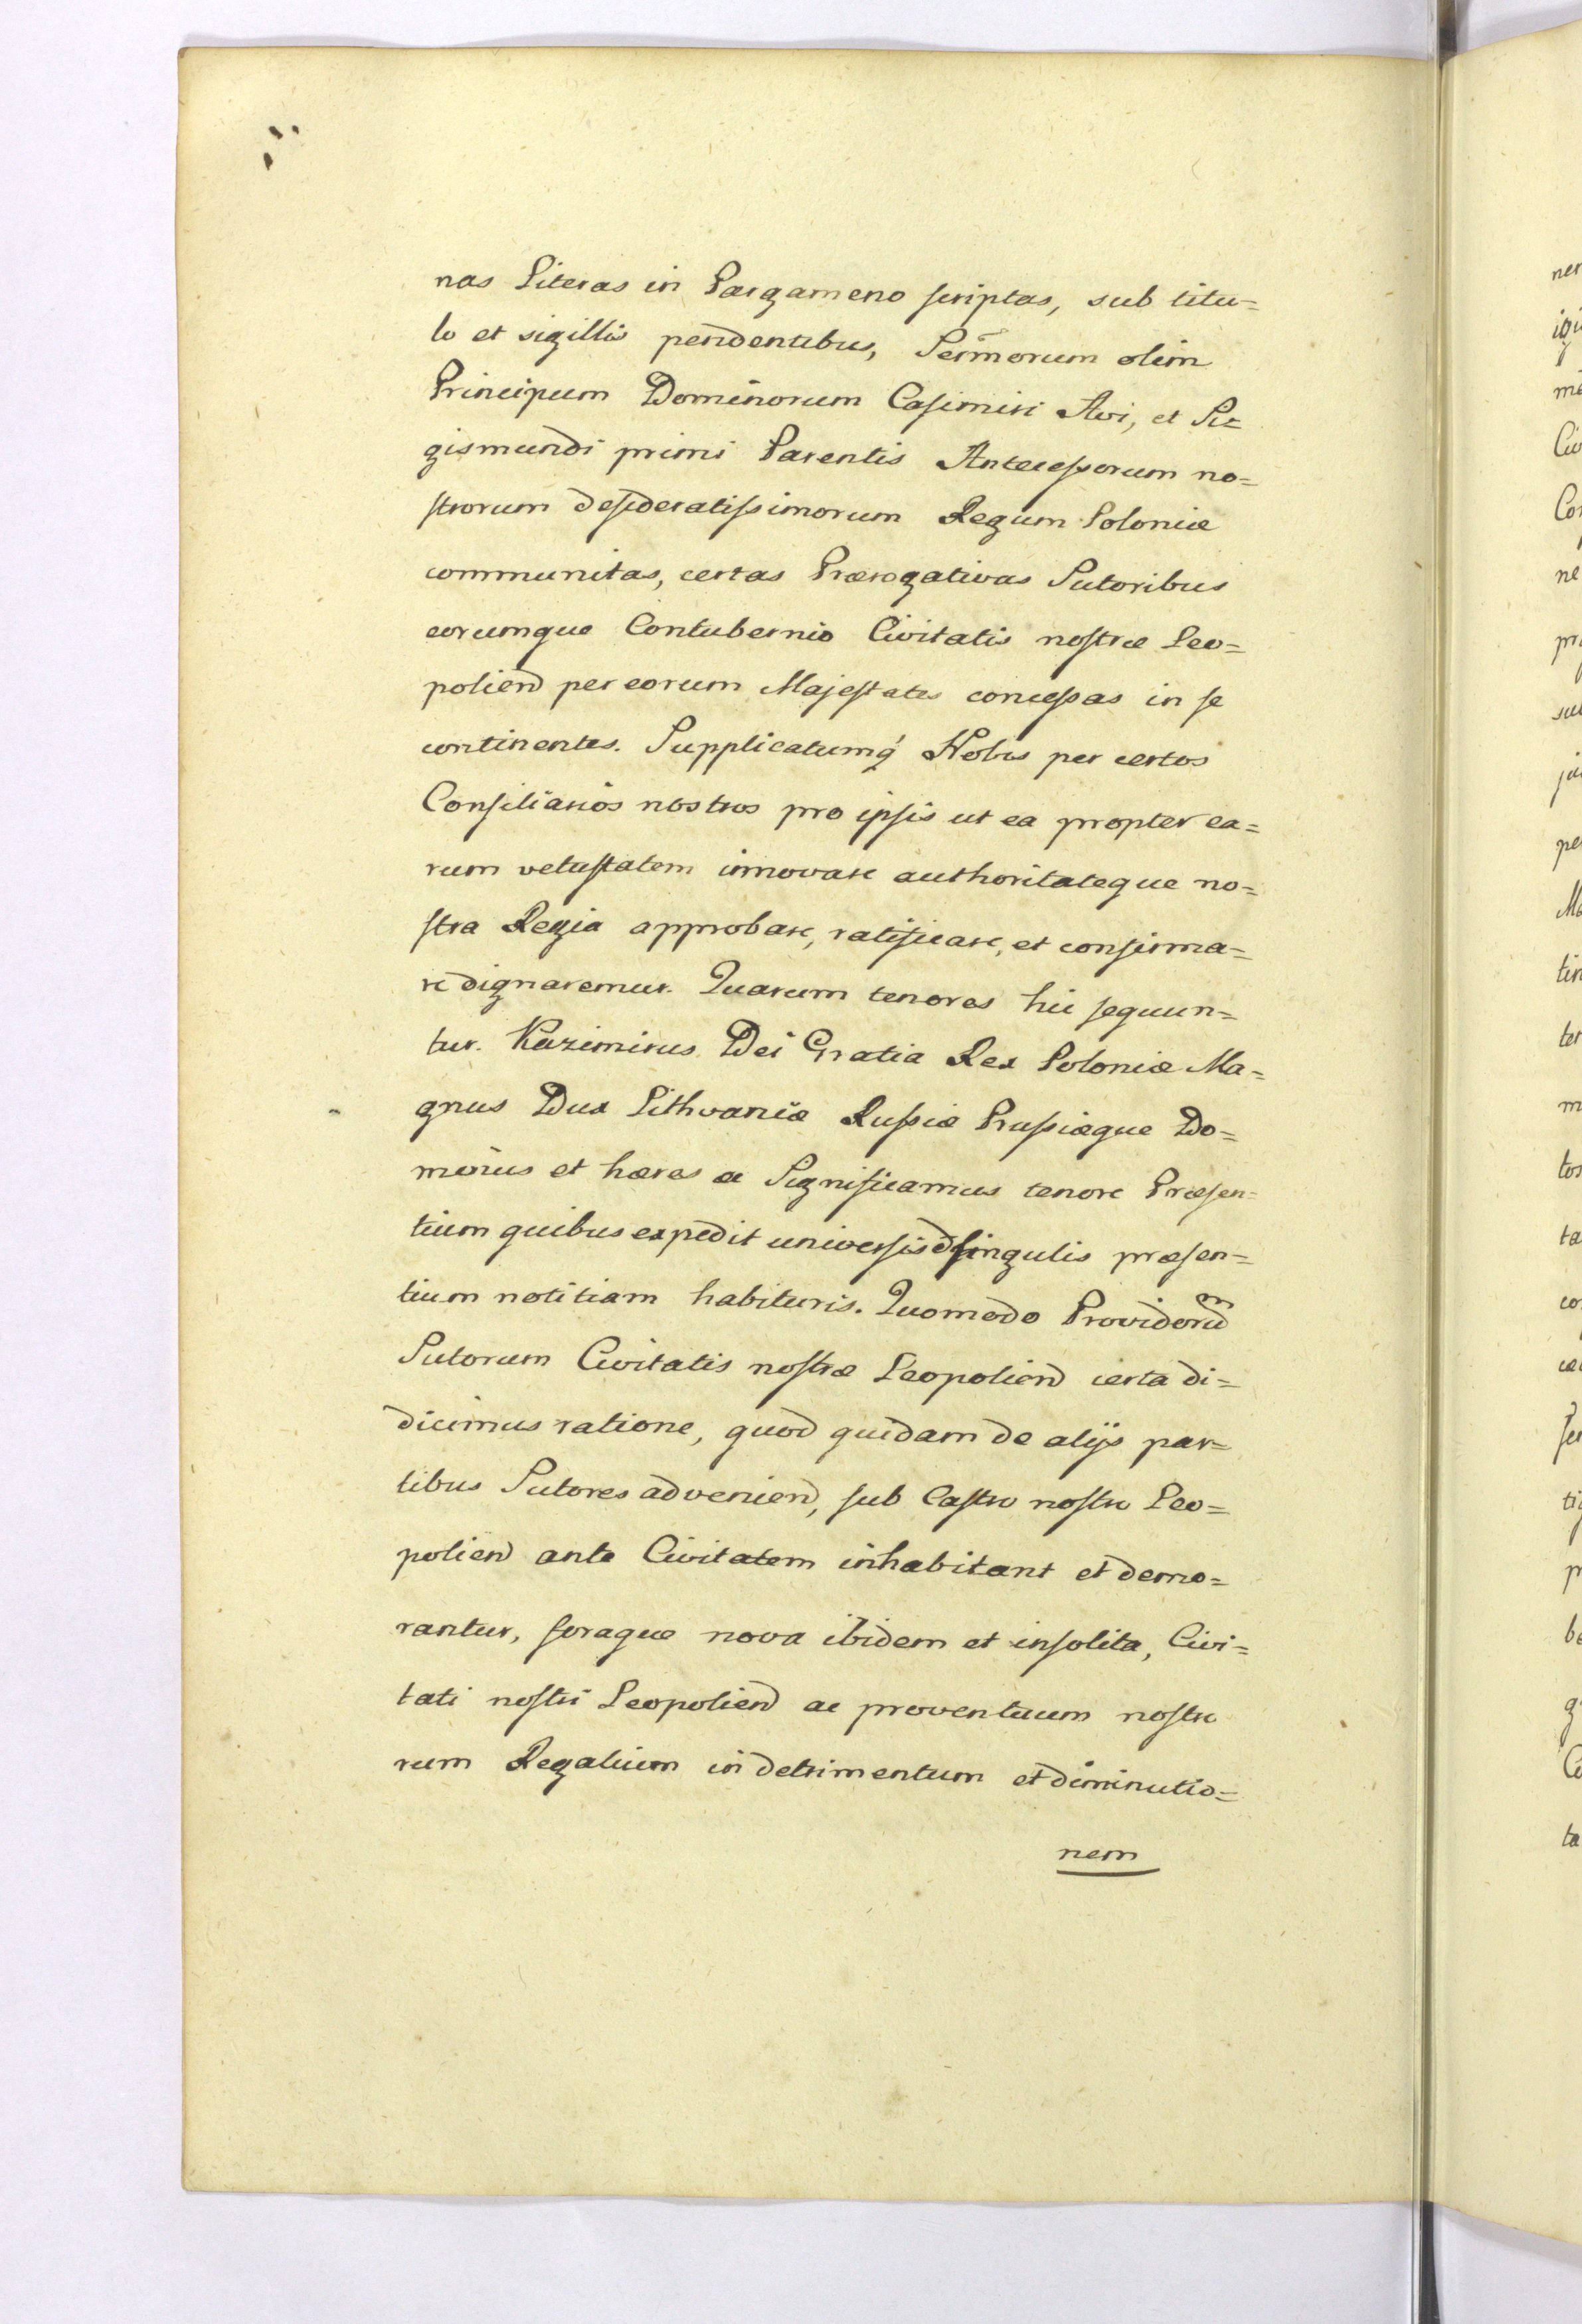 nas Literas in Pargameno scriptas, sub titu=
lo et sigillis pendentibus, Sermorum olim
Principum Dominorum Casimiri Avi, et Si=
gismundi primi Parentis Antecessorum no=
strorum desideratissimorum Regum Poloniæ
communitas, certas Prærogativas Sutoribus
eorumque Contubernio Civitatis nostræ Leo=
poliend per eorum Majestates concessas in se
continentes. Supplicatumq́ Nobis per certos
Consiliarios nostros pro ipsis ut ea propter ea=
rum vetustatem innovare authoritateque no=
stra Regia approbare, ratificare, et confirma=
re dignaremur. Quarum tenores hic sequun=
tur. Kazimirus Dei Gratia Rex Poloniæ Ma=
gnus Dux Lithvaniæ Russiæ Prussiæque Do=
minus et hæres &c Significamus tenore Præsen=
tium quibus expedit universis et singulis præsen=
tium notitiam habituris. Quomodo Providorum
Sutorum Civitatis nostræ Leopoliend certa di=
dicimus ratione, quod quidam de alijs par=
tibus Sutores adveniend, sub Castro nostro Leo=
poliend ante Civitatem inhabitant et demo=
rantur, foraque nova ibidem et insolita, Civi=
tati nostri Leopoliend ac proventuum nostro
rum Regalium in detrimentum et diminutio=
nem